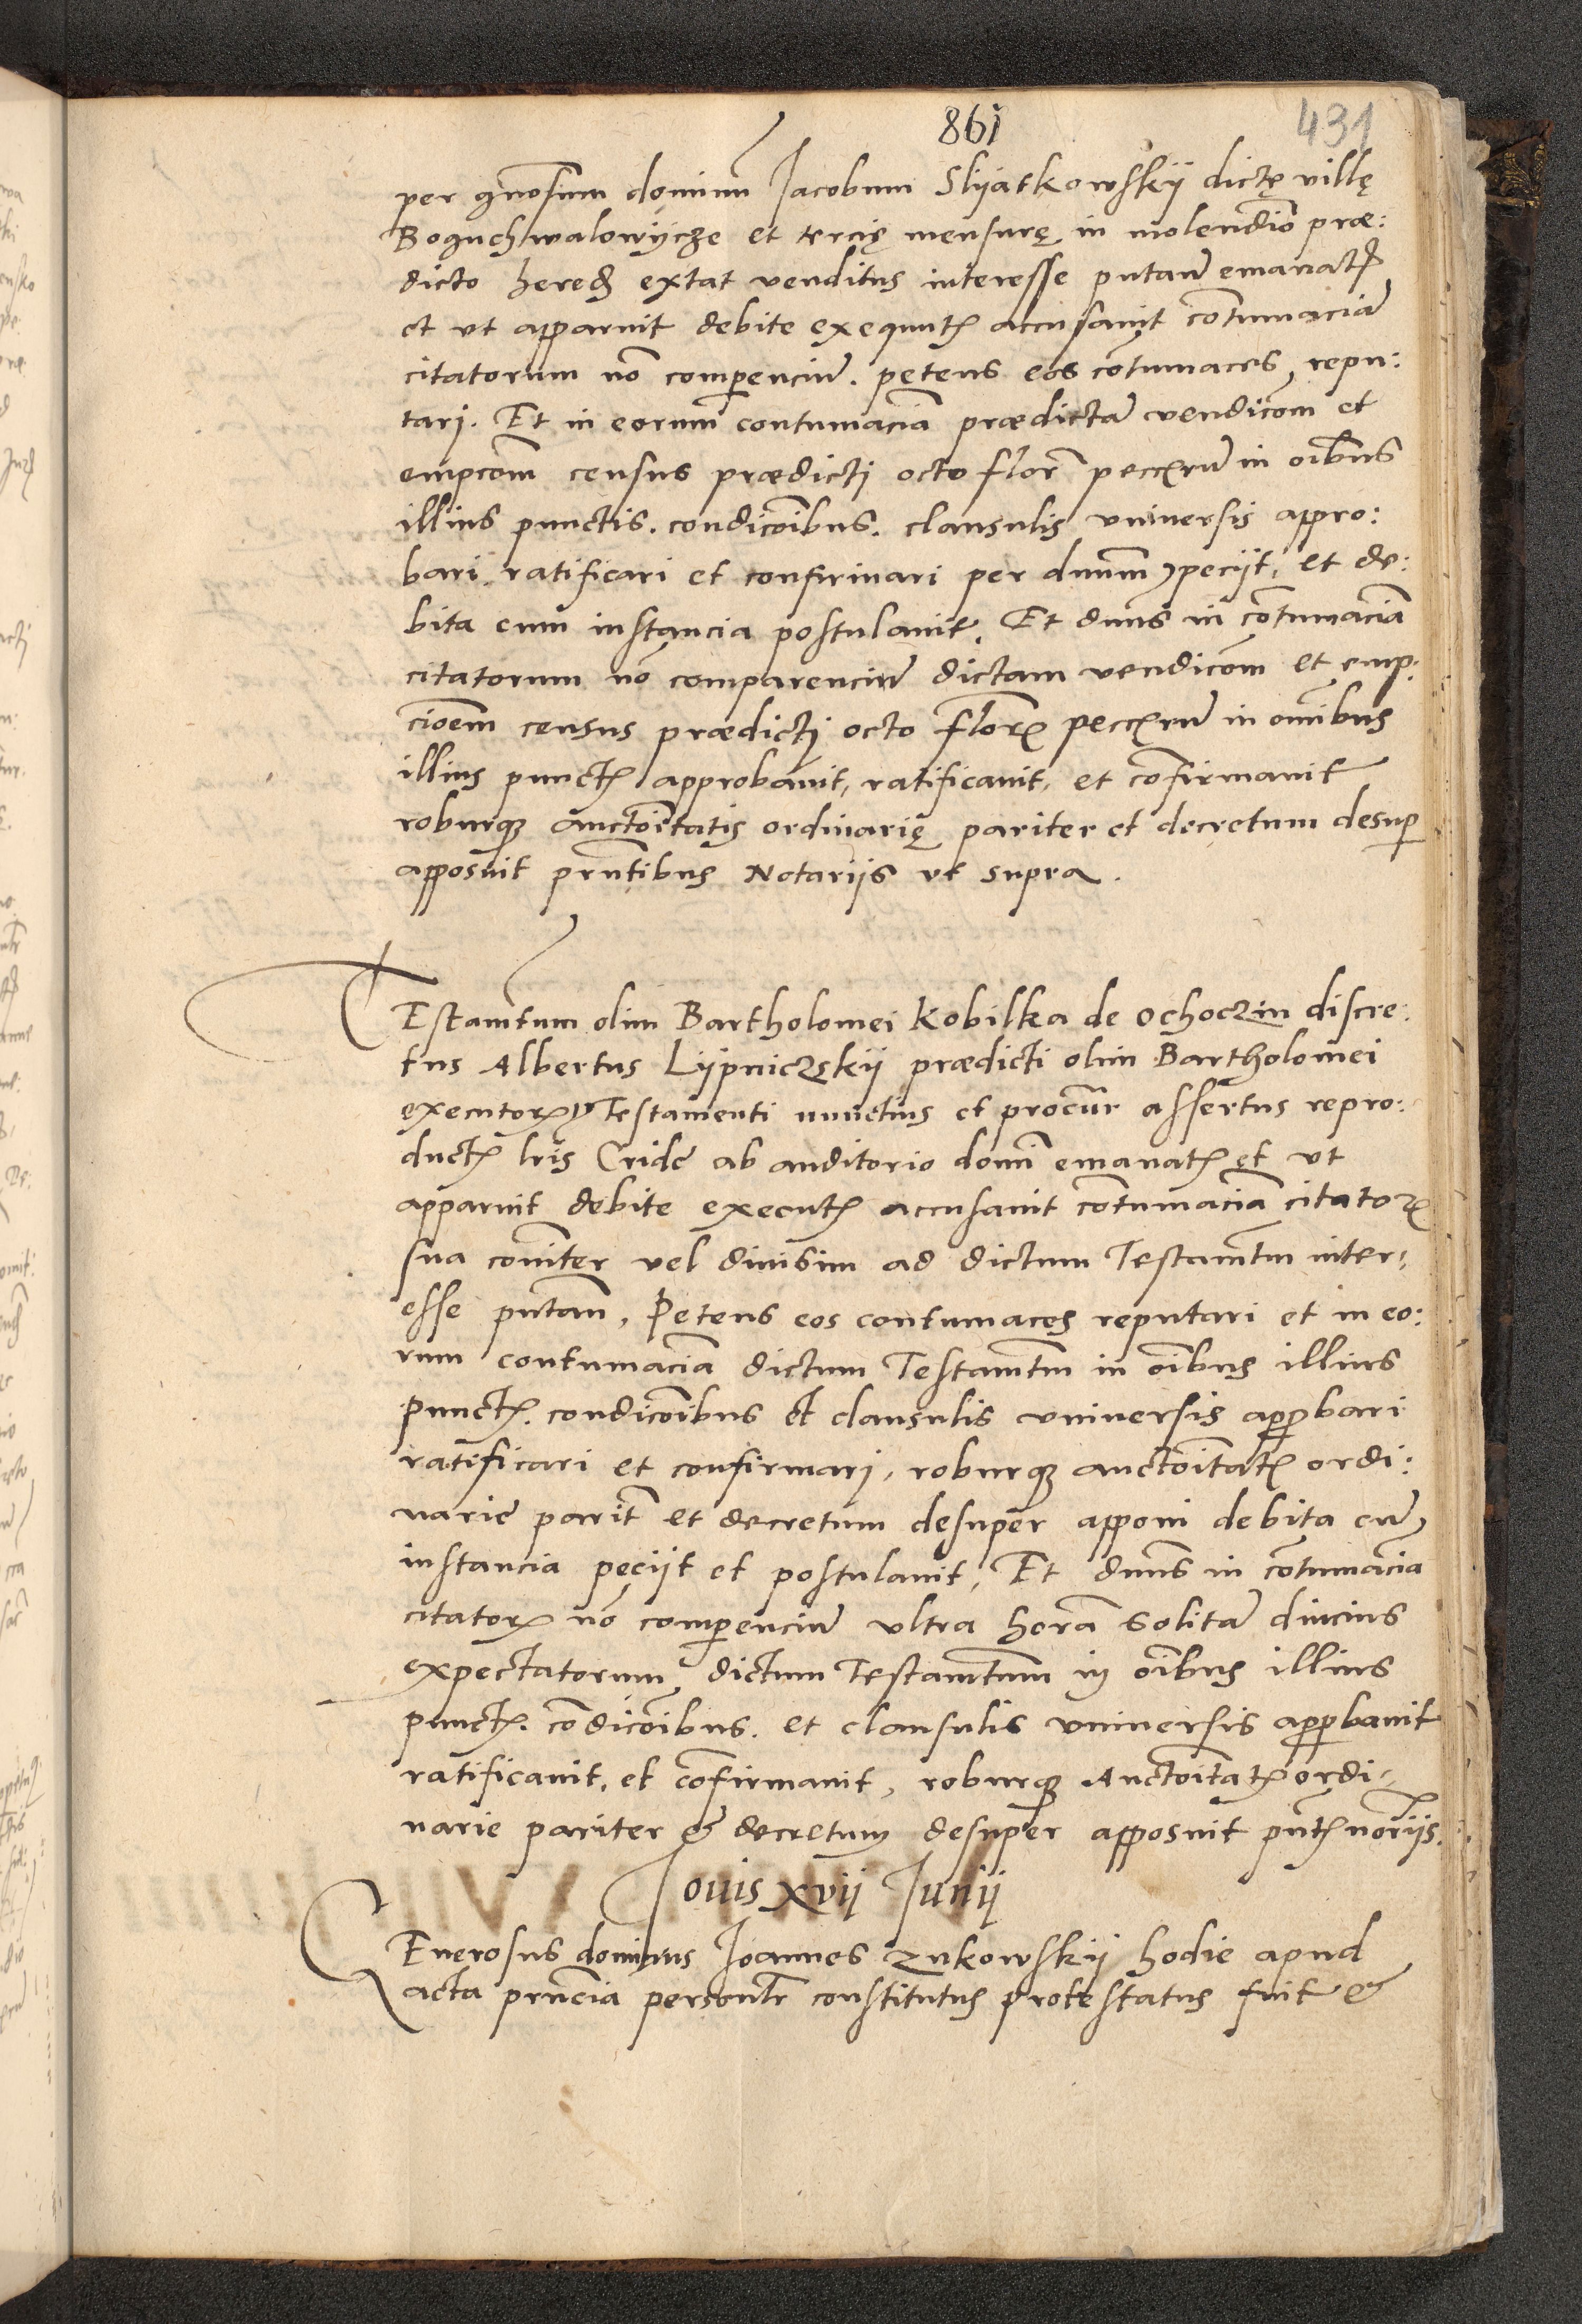 861
431
per gnosum dominum Jacobum Slyatkowskÿ dictę villę
Boguchwalowycze et tercię mensurę in molendio præ:
dicto hered extat venditus interesse putan emanat
et vt apparuit debite exequut accusauit cotumacia
citatorum no comperenciu. petens eos cotumaces, repu:
tari. Et in eorum contumacia prædicta vendicom et
empcom census prædicti octo flor pecc in oibus
illius punctis. condicoibus. clausulis vniuersis appro:
bari ratificari et confirmari per dnum peciit, et de:
bita cum instancia postulauit. Et dnus in cotumacia
citatorum no comparenciu dictam vendicom et emp:
cioem census prædicti octo flor pecc in omibus
illius punct approbauit, ratificauit, et cofirmauit
roburq auctoitatis ordinarię pariter et decretum desup
apposuit prntibus Notariis vt supra.
TEstamtum olim Bartholomei Kobilka de Ochoczin discre:
tus Albertus Lÿpniczskÿ prædicti olim Bartholomei
executor Testamenti nunctius et procur assertus repro:
duct lris Cride ab auditorio domi emanat et vt
apparuit debite executs accusauit cotumacia citator
sua comiter vel diuisim ad dictum Testamtm inter,
esse putan. Petens eos contumaces reputari et in eo:
rum contumacia dictum Testamtm in oibus illius
punct. condicoibus et clausulis vniuersis approbari
ratificari et confirmari, roburq auctoitat ordi:
narie parit et decretum desuper apponi debita cu
instancia peciit et postulauit, Et dnus in cotumacia
citator no comperenciu vltra hora solita diucius
expectatorum dictum Testamtum in oibus illius
punct. codicoibus. et clausulis vniuersis approbauit
ratificauit, et cofirmauit, roburq Auctoitat ordi-
narie pariter & decretum desuper apposuit pnt noriis.
Jouis xvij Junij
GEnerosus dominus Joannes Zukowskÿ hodie apud
acta prncia personlr constitutus protestatus fuit &